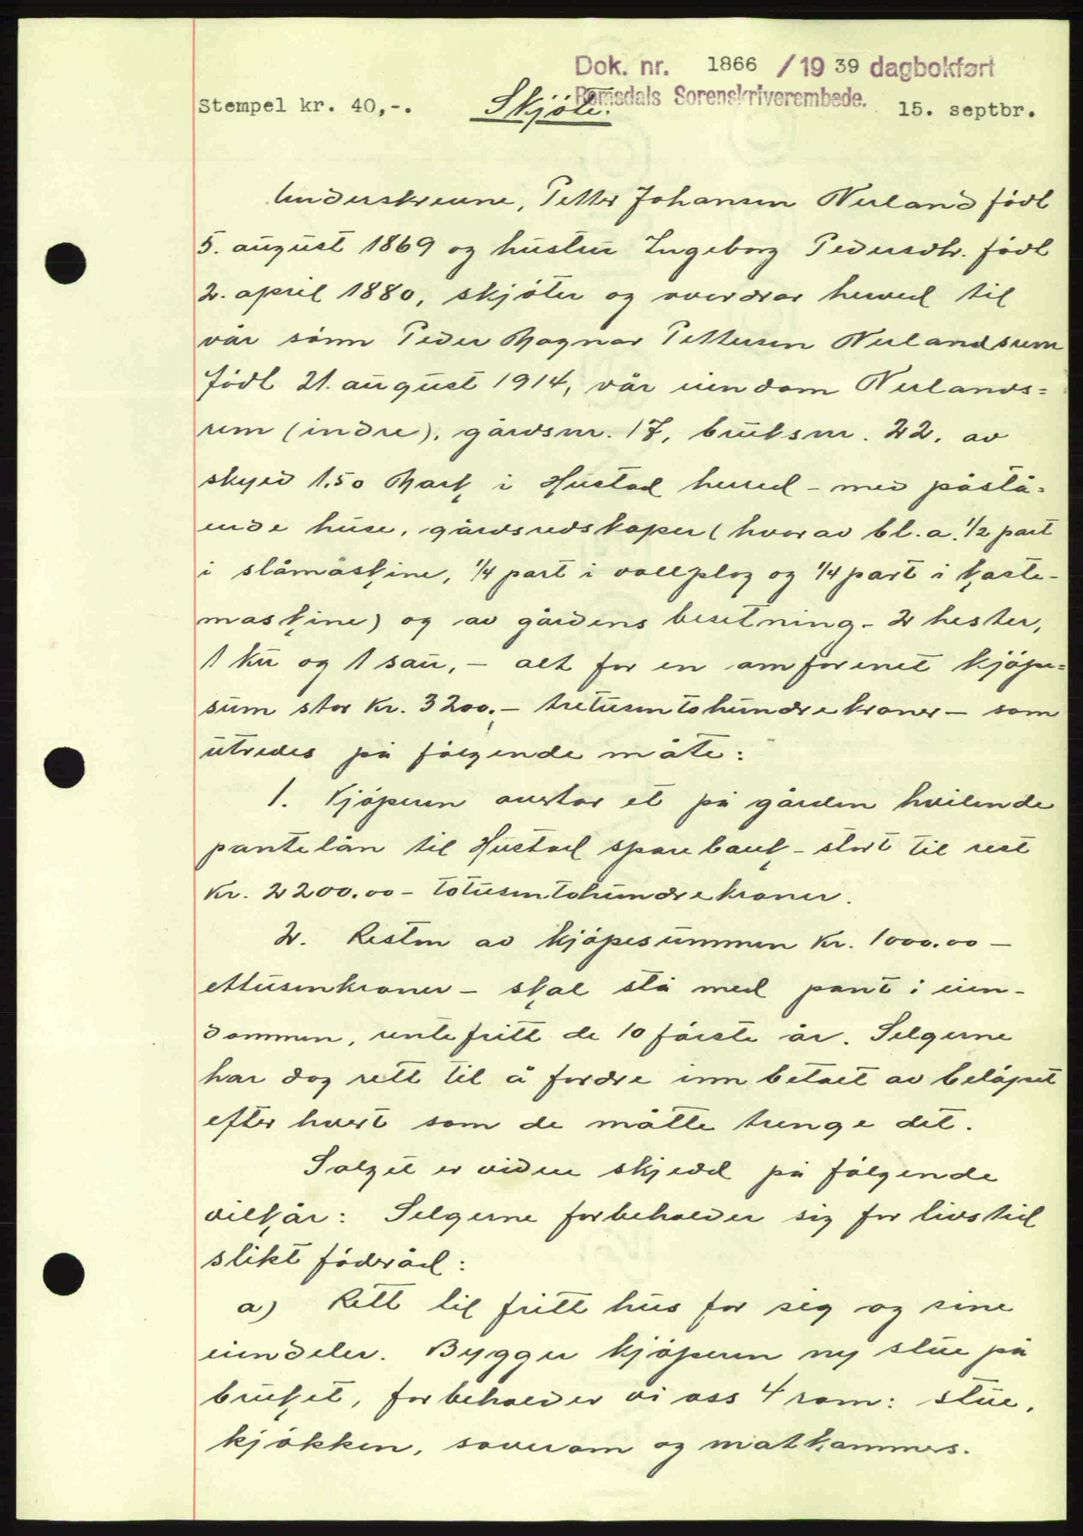 Dok. nr. 1866 / 1939 dagbokført
Romsdals Sorenskriverembede.
Stempel kr. 40,-. Skjöte. 15. septbr.
Underskrevne, Petter Johansen Nerland född
5. august 1869 og hustru Ingeborg Pedersdtr. född
2. april 1880, skjöter og overdrar herved til
vår sönn Peder Magnar Pettersen Nerlandsrem
född 21. august 1914, vår eiendom Nerlands=
rem (indre), gårdsnr. 17, bruksnr. 22, av
skyld 1.50 Mark i Hustad herred - med påstå=
ende huse, gårdsredskaper (hvorav bl. a. 1/2 part
i slåmaskine, 1/4 part i vollplog og 1/4 part i kaste-
maskine) og av gårdens besetning - 2 hester,
1 ku og 1 sau, - alt for en omforenet kjöpe=
sum stor kr. 3200,- tretusentohundrekroner - som
utredes på fölgende måte:
1. Kjöperen overtar et på gården hvilende
pantelån til Hustad sparebank - stort til rest
kr. 2200.00 - totusentohundrekroner.
2. Resten av kjöpesummen kr. 1000.00 -
ettusenkroner - skal stå med pant i eien-
dommen, rentefritt de 10 förste år. Selgerne
har dog rett til å fordre innbetalt av belöpet
efter hvert som de måtte trenge det.
Salget er videre skjedd på fölgende
vilkår: Selgerne forbeholder sig for livstid
slikt föderåd:
a) Rett til fritt hus for sig og sine
eiendeler. Bygger kjöperen ny stue på
bruket, forbeholder vi oss 4 rom: stue,
kjökken, soverom og matkammers.